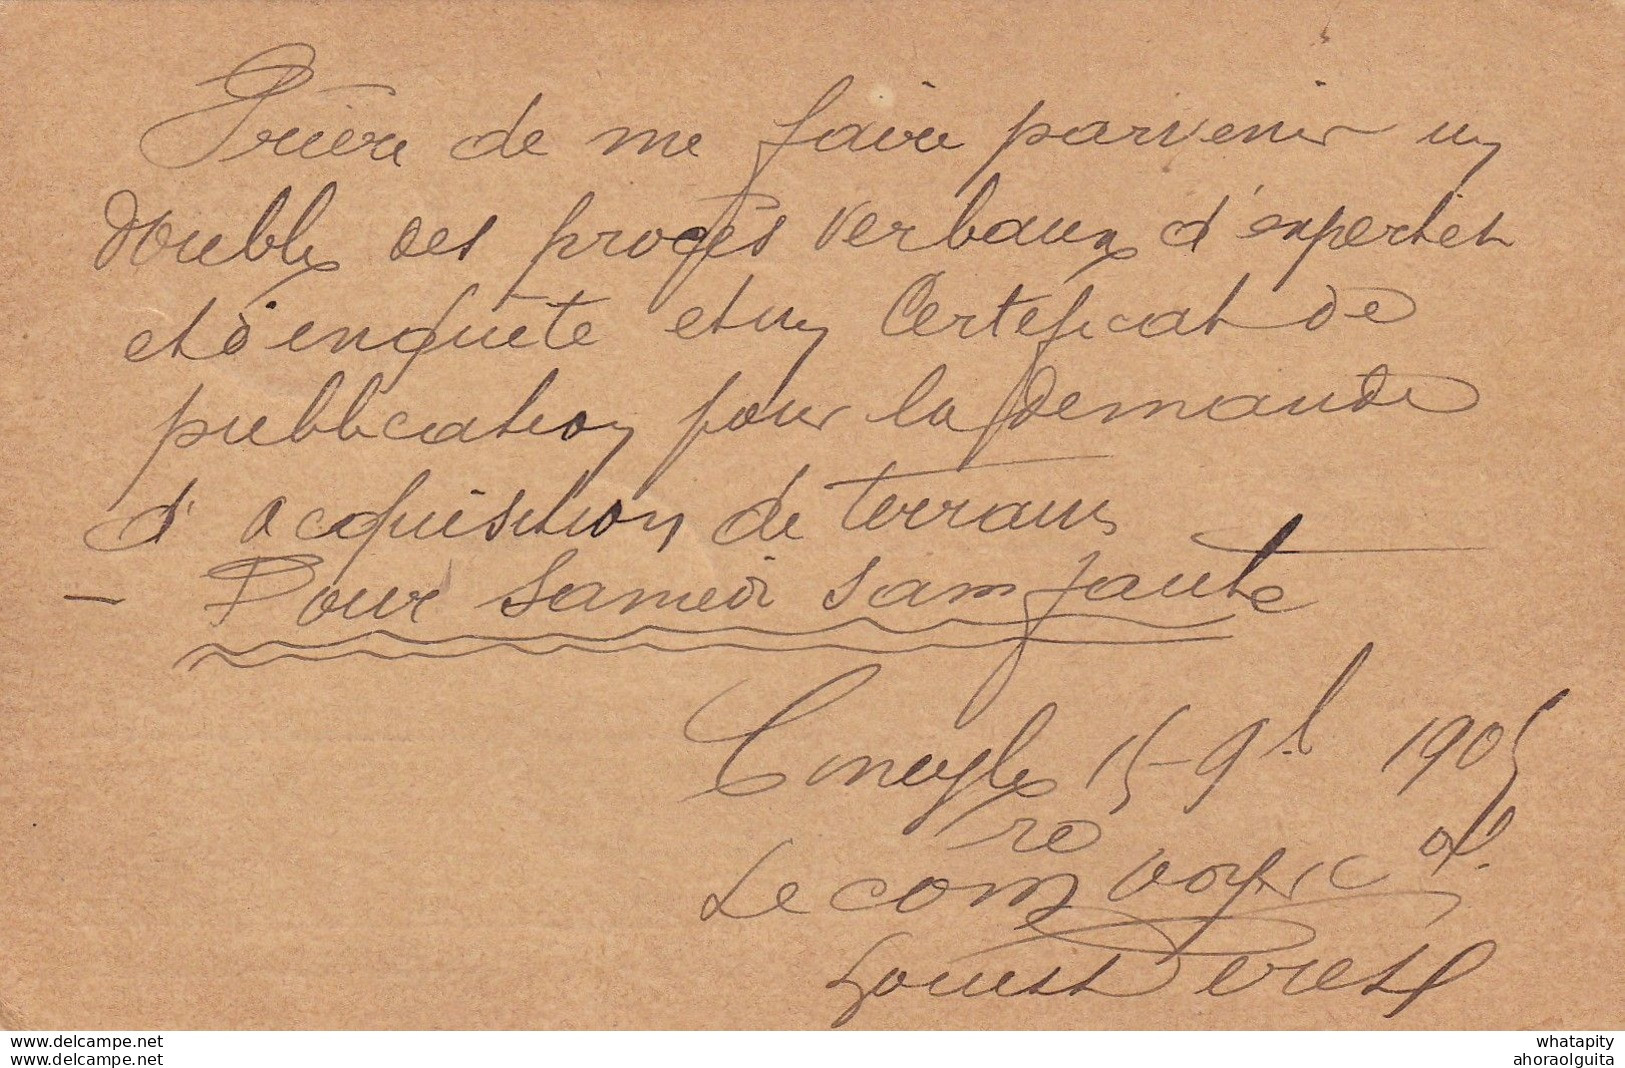 Prière de me faire parvenir un
double des procès verbaux d'expertises
et d'enquête et un Certificat de
publication pour la demande
d'acquisition de terrains
– Pour samedi sans faute
15 - 9b 1905
re
Le com voyer
Louis
whatapity
ahoraolguita
whatapity
ahoraolguita